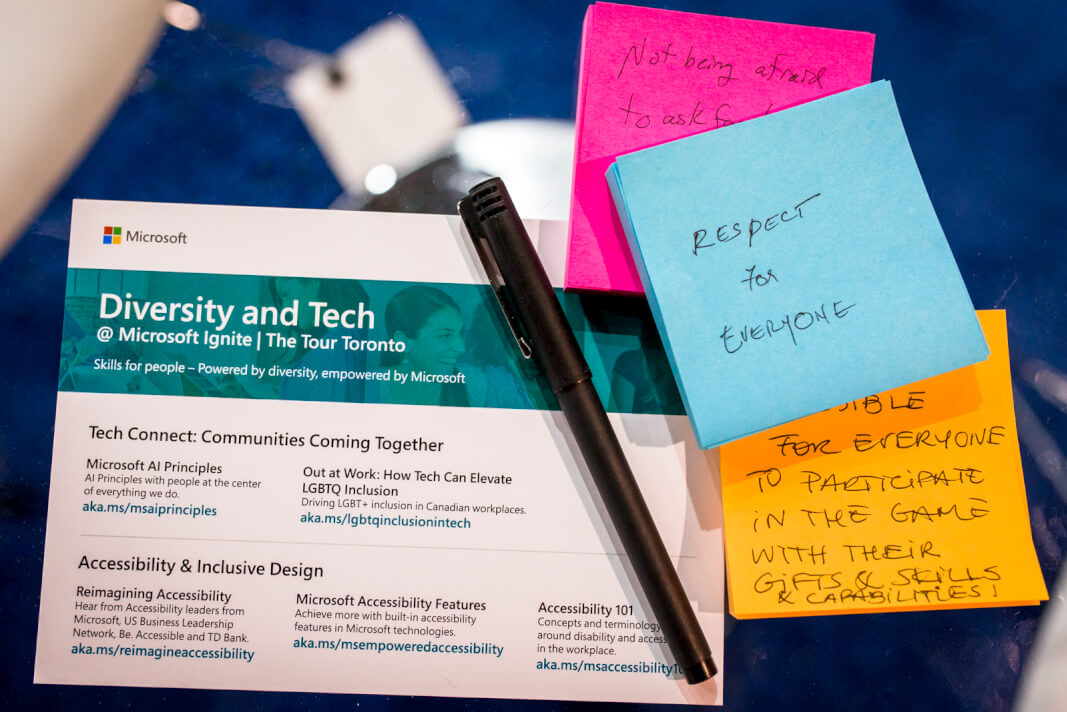 Microsoft
Diversity and Tech
@ Microsoft Ignite | The Tour Toronto
Skills for people – Powered by diversity, empowered by Microsoft
Tech Connect: Communities Coming Together
Microsoft AI Principles
AI Principles with people at the center
of everything we do.
aka.ms/msaiprinciples
Out at Work: How Tech Can Elevate
LGBTQ Inclusion
Driving LGBT+ inclusion in Canadian workplaces.
aka.ms/lgbtqinclusionintech
Accessibility & Inclusive Design
Reimagining Accessibility
Hear from Accessibility leaders from
Microsoft, US Business Leadership
Network, Be. Accessible and TD Bank.
aka.ms/reimagineaccessibility
Microsoft Accessibility Features
Achieve more with built-in accessibility
features in Microsoft technologies.
aka.ms/msempoweredaccessibility
Accessibility 101
Concepts and terminology
around disability and
in the workplace.
Not being afraid
to ask
RESPECT
for
EVERYONE
FOR EVERYONE
TO PARTICIPATE
IN THE GAME
WITH THEIR
GIFTS & SKILLS
& CAPABILITIES!